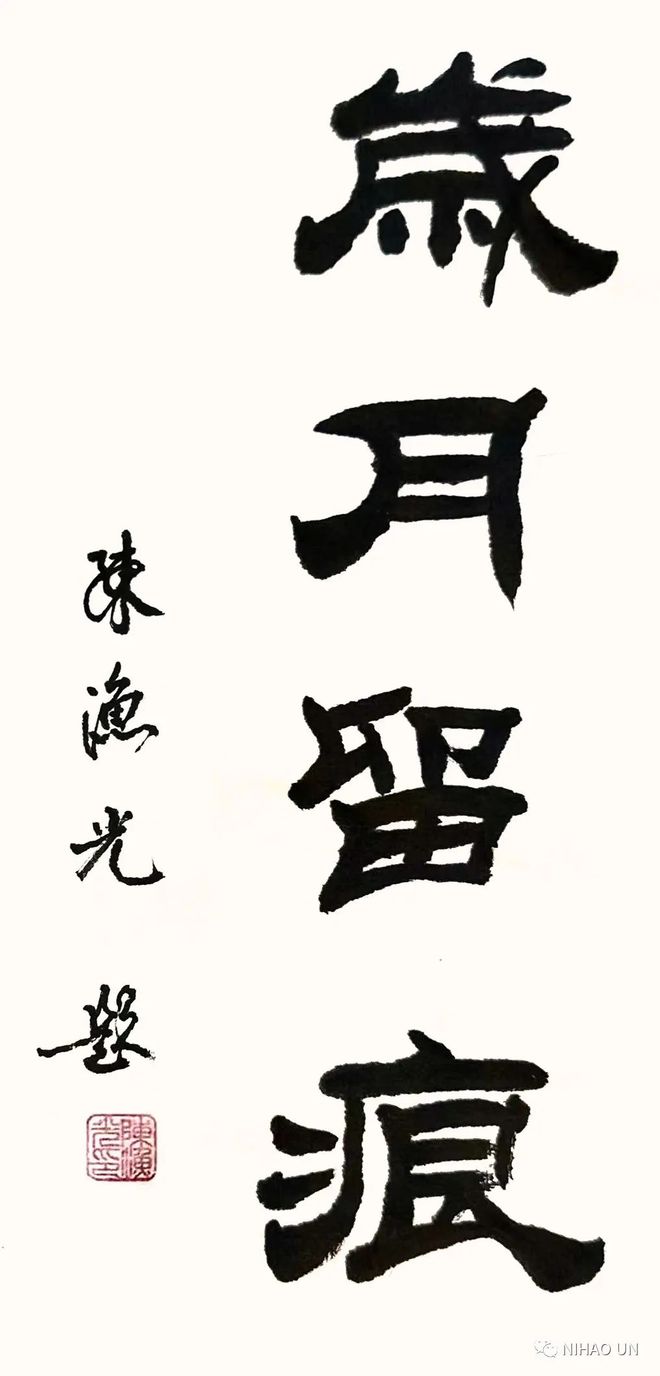 歲月留痕
陳漁光 題
陳漁光印
NIHAO UN